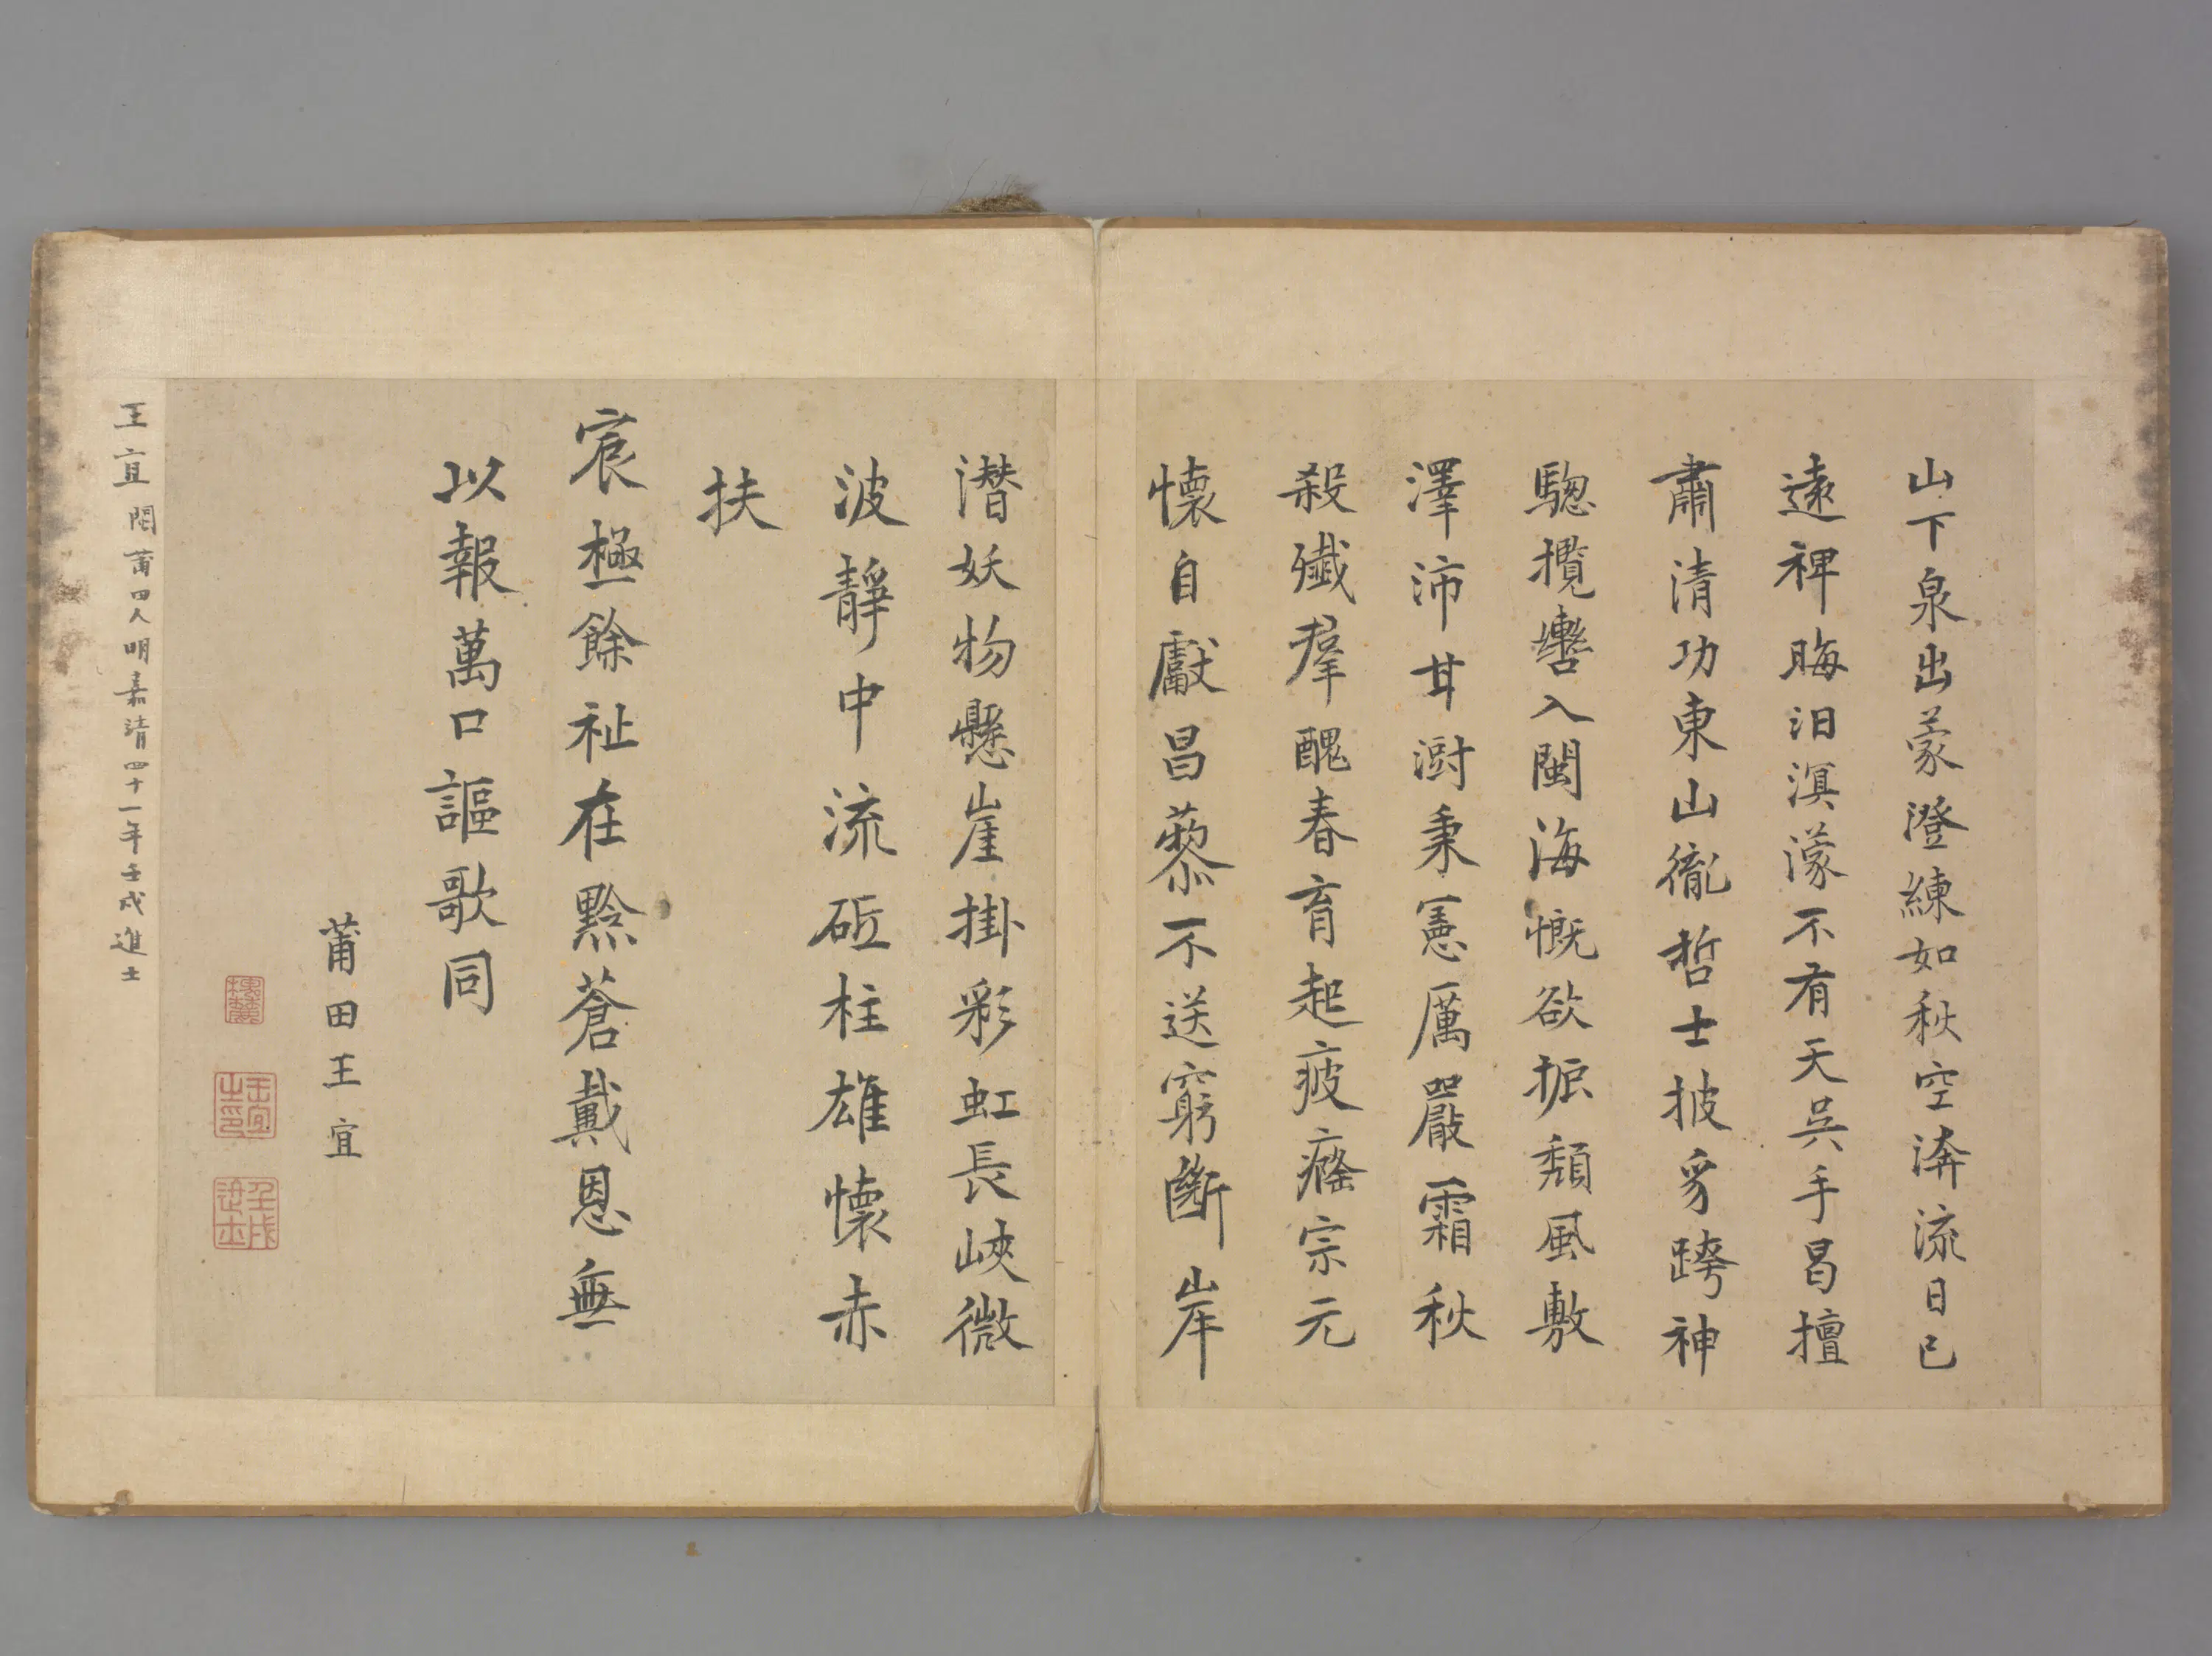 山下泉出蒙澄練如秋空渀流日已
遠裨晦汨溟濛不有天吳手曷擅
肅清功東山徹哲士披豸跨神
驄攬轡入閩海慨欲振頹風敷
澤沛甘澍秉憲厲嚴霜秋
殺殲群醜春育起疲癃宗元
懷自獻昌藜不送窮斷岸
潛妖物懸崖掛彩虹長峽微
波靜中流砥柱雄懷赤
扶
宸極餘祉在黔蒼戴恩無
以報萬口謳歌同
莆田王宜
王宜之印
壬戌進士
王宜閩莆田人明嘉清四十一年壬戌進士